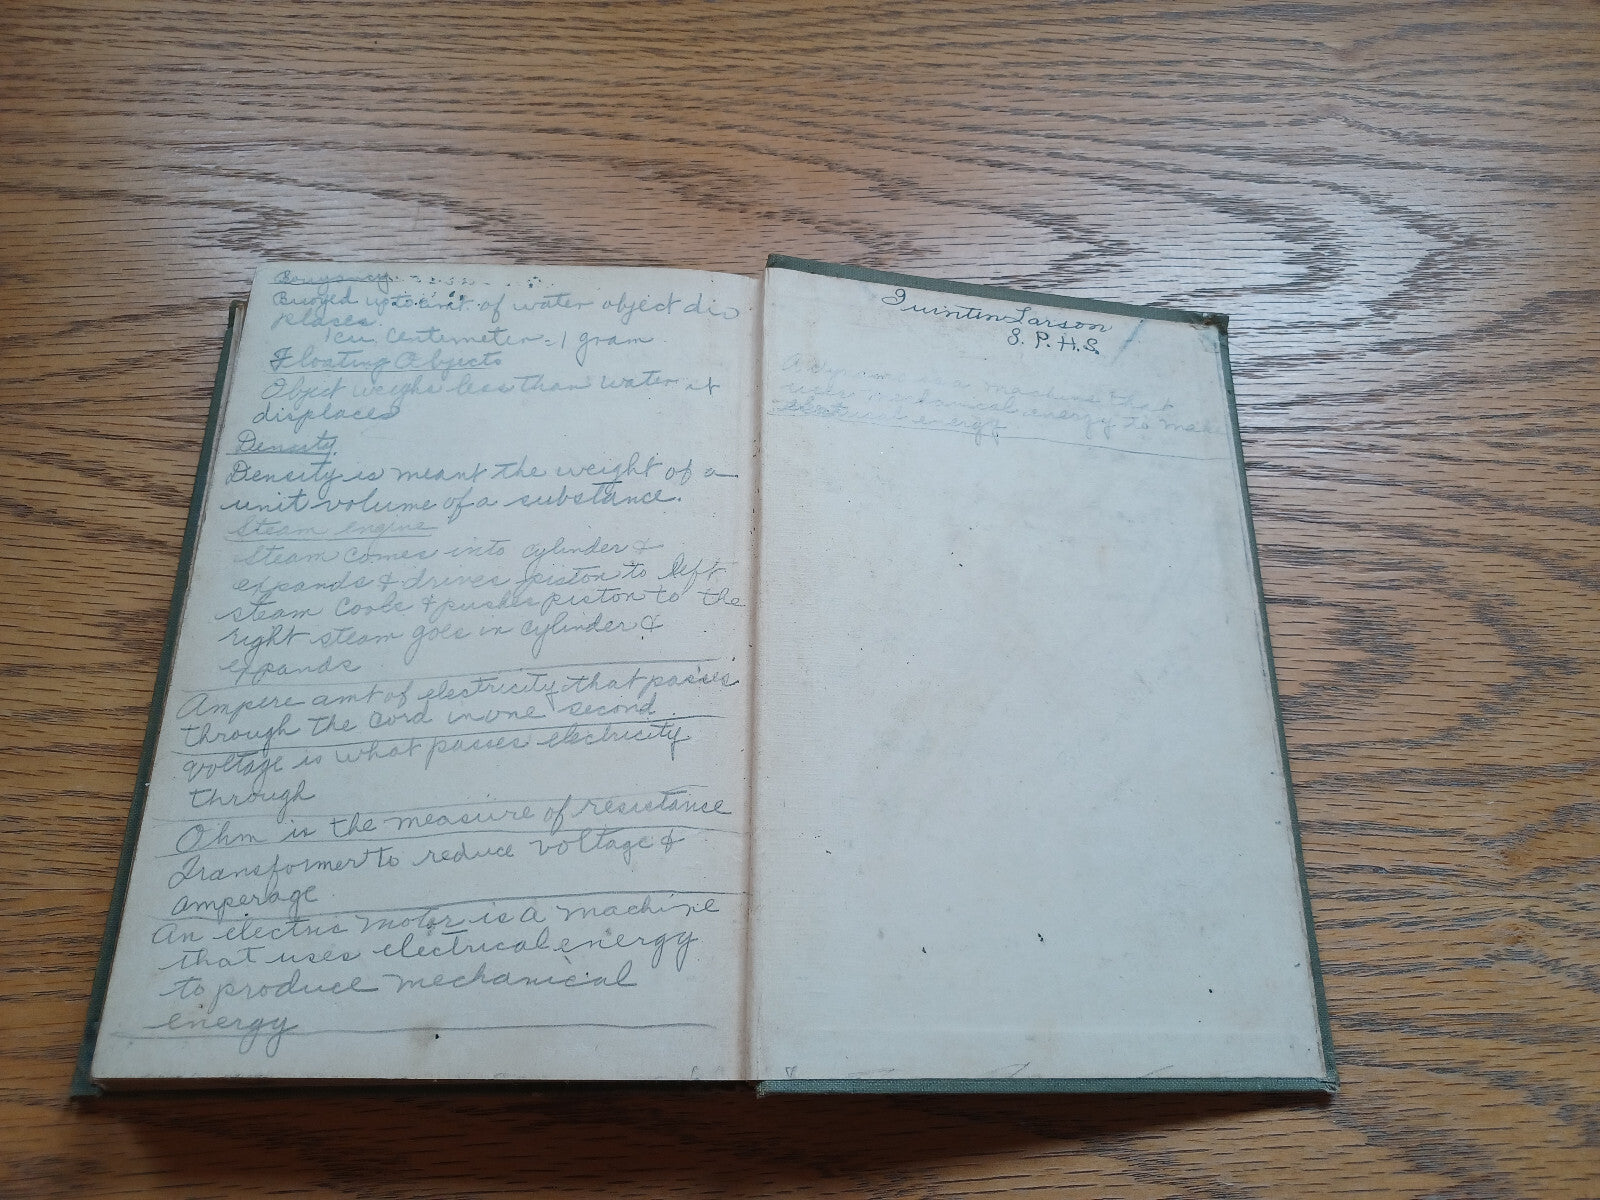 Bouyancy
Buoyed up to amt. of water object dis
places.
1 cu. Centimeter = 1 gram
Floating Objects
Object weighs less than water it
displaces
Density
Density is meant the weight of a
unit volume of a substance.
Steam engine
Steam comes into cylinder &
expands & drives piston to left
steam cools & pushes piston to the
right steam goes in cylinder &
expands
Ampere amt of electricity that passes
through the cord in one second
Voltage is what passes electricity
through
Ohm is the measure of resistance
Transformer to reduce voltage &
amperage
An electric motor is a machine
that uses electrical energy
to produce mechanical
energy
Quintin Larson
S. P. H. S.
A dynamo is a machine that
uses mechanical energy to make
electrical energy